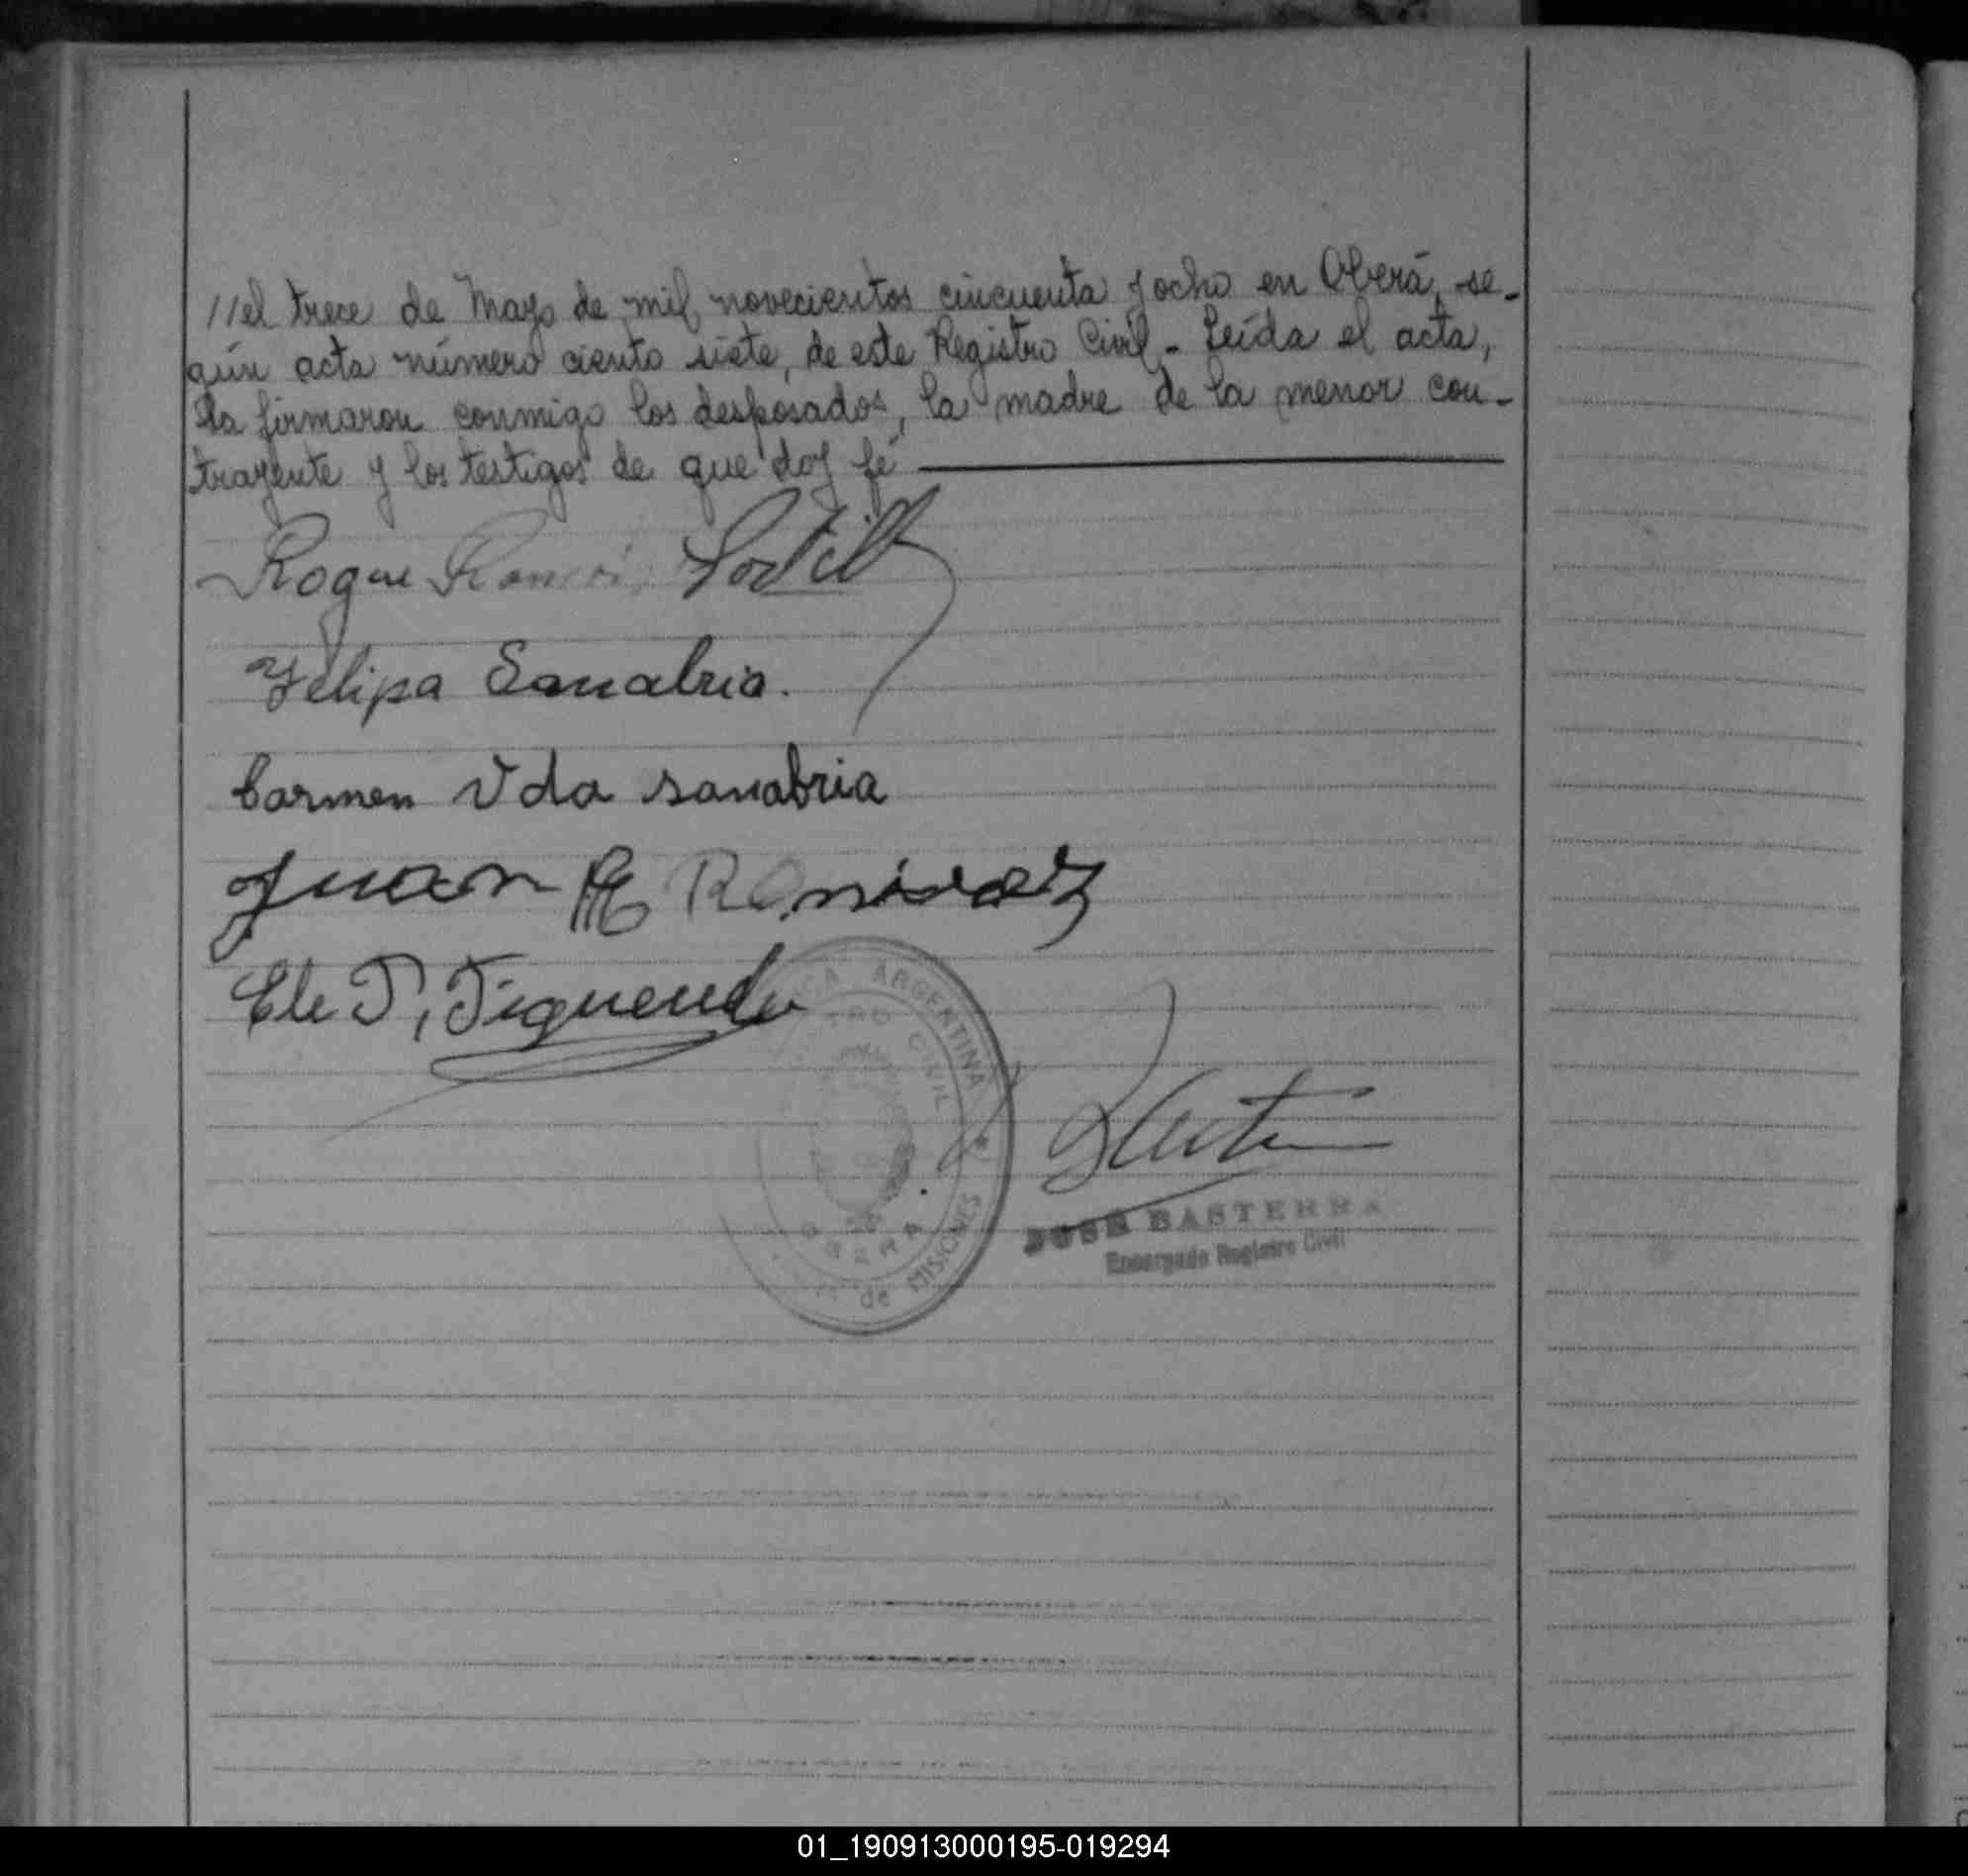 //el trece de Mayo de mil novecientos cincuenta y ocho en Oberá, se-
gún acta número ciento siete, de este Registro Civil - Leída el acta,
la firmaron conmigo los desposados, la madre de la menor con-
trayente y los testigos de que doy fé
Roque Ramón
Felipa Sanabria.
Carmen Vda sanabria
Juan Ramirez
ARGENTINA
CIVIL
OBERA
de MISIONES
JOSE BASTERRA
Encargado Registro Civil
01_190913000195-019294